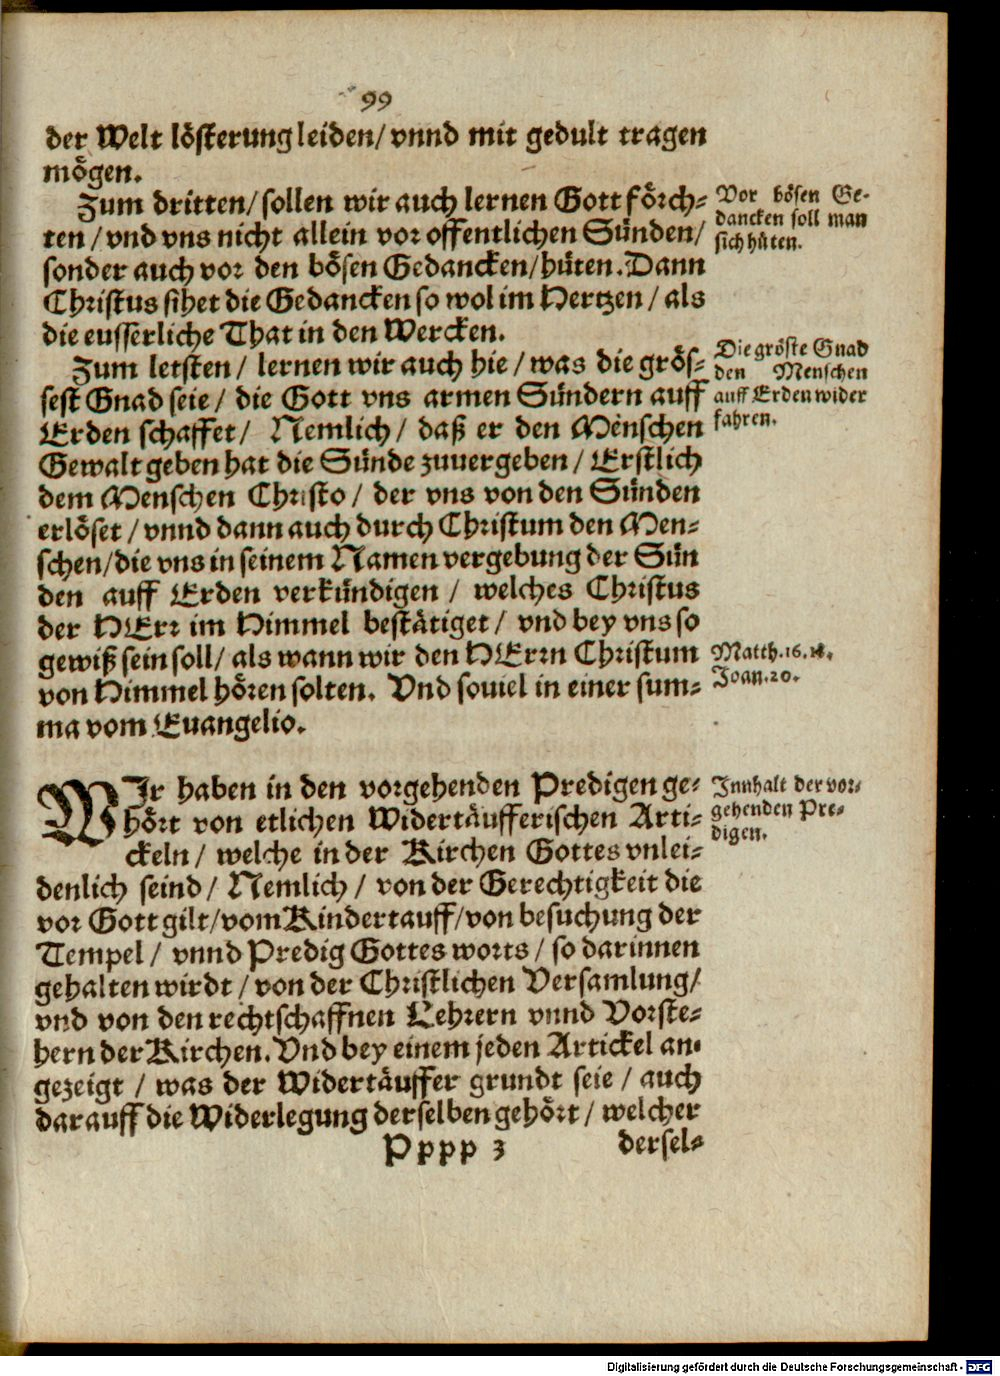 99
der Welt lösterung leiden/ vnnd mit gedult tragen
mögen.
Zum dritten/ sollen wir auch lernen Gott förch-
ten / vnd vns nicht allein vor offentlichen Sünden/
sonder auch vor den bösen Gedancken/ hüten. Dann
Christus sihet die Gedancken so wol im Hertzen / als
die eusserliche That in den Wercken.
Vor bösen Ge-
dancken soll man
sich hüten.
Zum letsten / lernen wir auch hie / was die grös-
sest Gnad seie / die Gott vns armen Sündern auff
Erden schaffet/ Nemlich / daß er den Menschen
Gewalt geben hat die Sünde zuuergeben / Erstlich
dem Menschen Christo / der vns von den Sünden
erlöset / vnnd dann auch durch Christum den Men-
schen/ die vns in seinem Namen vergebung der Sün
den auff Erden verkündigen / welches Christus
der HErr im Himmel bestätiget / vnd bey vns so
gewiß sein soll/ als wann wir den HErrn Christum
von Himmel hören solten. Vnd souiel in einer sum-
ma vom Euangelio.
Die gröste Gnad
den Menschen
auff Erden wider
fahren.
Matth. 16. 18.
Joan. 20.
WIr haben in den vorgehenden Predigen ge-
hört von etlichen Widertäufferischen Arti-
ckeln / welche in der Kirchen Gottes vnlei-
denlich seind / Nemlich / von der Gerechtigkeit die
vor Gott gilt/ vom Kindertauff/ von besuchung der
Tempel / vnnd Predig Gottes worts / so darinnen
gehalten wirdt / von der Christlichen Versamlung/
vnd von den rechtschaffnen Lehrern vnnd Vorste-
hern der Kirchen. Vnd bey einem jeden Artickel an-
gezeigt / was der Widertäuffer grundt seie / auch
darauff die Widerlegung derselben gehört / welcher
Innhalt der vor-
gehenden Pre-
digen.
Pppp 3 dersel-
Digitalisierung gefördert durch die Deutsche Forschungsgemeinschaft - DFG